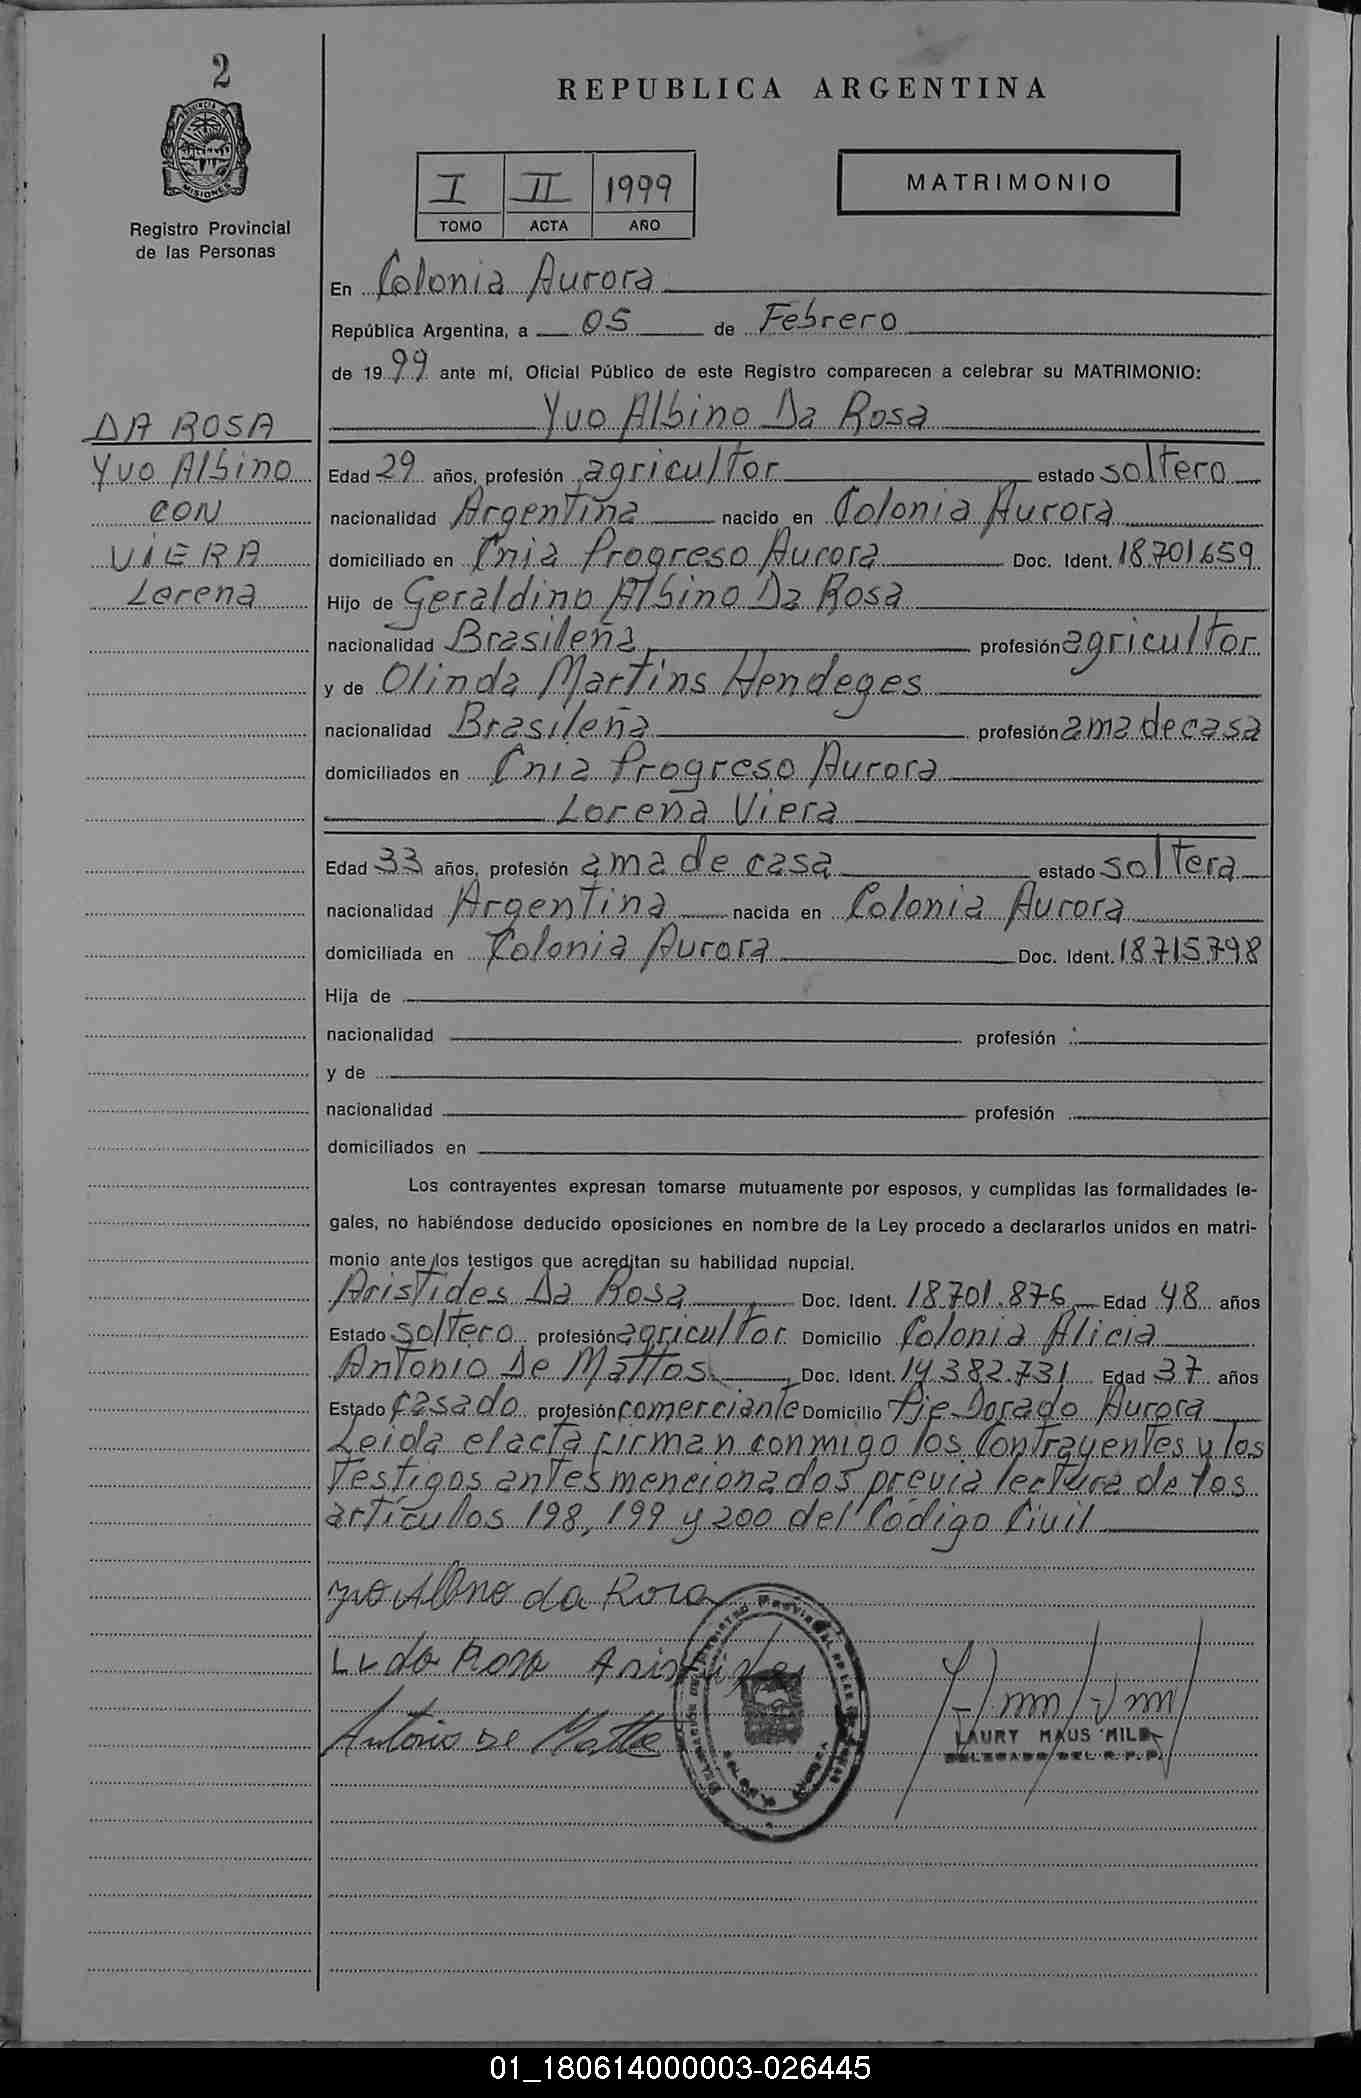 2
PROVINCIA DE
MISIONES
Registro Provincial
de las Personas
REPUBLICA ARGENTINA
I II 1999
TOMO ACTA AÑO
MATRIMONIO
En Colonia Aurora
República Argentina, a 05 de Febrero
de 1999 ante mí, Oficial Público de este Registro comparecen a celebrar su MATRIMONIO:
Yvo Albino Da Rosa
DA ROSA
Yvo Albino
CON
VIERA
Lorena
Edad 29 años, profesión agricultor estado soltero
nacionalidad Argentina nacido en Colonia Aurora
domiciliado en Cnia Progreso Aurora Doc. Ident. 18.701.659
Hijo de Geraldino Albino Da Rosa
nacionalidad Brasileña profesión agricultor
y de Olinda Martins Hendeges
nacionalidad Brasileña profesión ama de casa
domiciliados en Cnia Progreso Aurora
Lorena Viera
Edad 33 años, profesión ama de casa estado soltera
nacionalidad Argentina nacida en Colonia Aurora
domiciliada en Colonia Aurora Doc. Ident. 18.715.798
Hija de
nacionalidad profesión
y de
nacionalidad profesión
domiciliados en
Los contrayentes expresan tomarse mutuamente por esposos, y cumplidas las formalidades le-
gales, no habiéndose deducido oposiciones en nombre de la Ley procedo a declararlos unidos en matri-
monio ante los testigos que acreditan su habilidad nupcial.
Aristides Da Rosa Doc. Ident. 18.701.876 Edad 48 años
Estado soltero profesión agricultor Domicilio Colonia Alicia
Antonio De Mattos Doc. Ident. 14.382.731 Edad 37 años
Estado casado profesión comerciante Domicilio Pje Dorado Aurora
Leida el acta firman conmigo los Contrayentes y los
Testigos antes mencionados previa lectura de los
artículos 198, 199 y 200 del Código Civil
yvo Albino da Rosa
LV da Rosa Aristides
Antonio De Matto
LAURY HAUS MILD
DELEGADO DEL R.P.P.
01_180614000003-026445